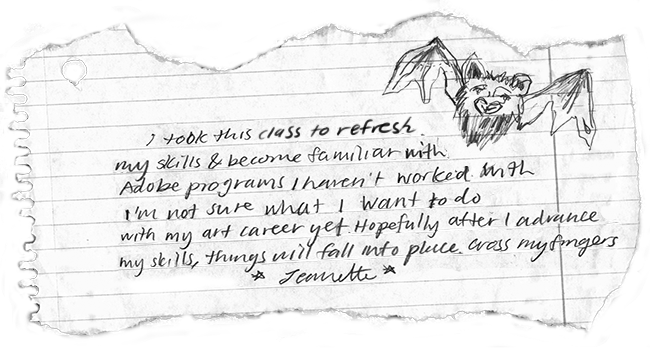 I took this class to refresh.
my skills & become familiar with
Adobe programs I haven't worked with
I'm not sure what I want to do
with my art career yet. Hopefully after I advance
my skills, things will fall into place. cross my fingers
* Jeanette *